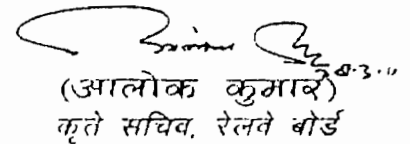 (आलोक कुमार)
कृते सचिव, रेलवे बोर्ड